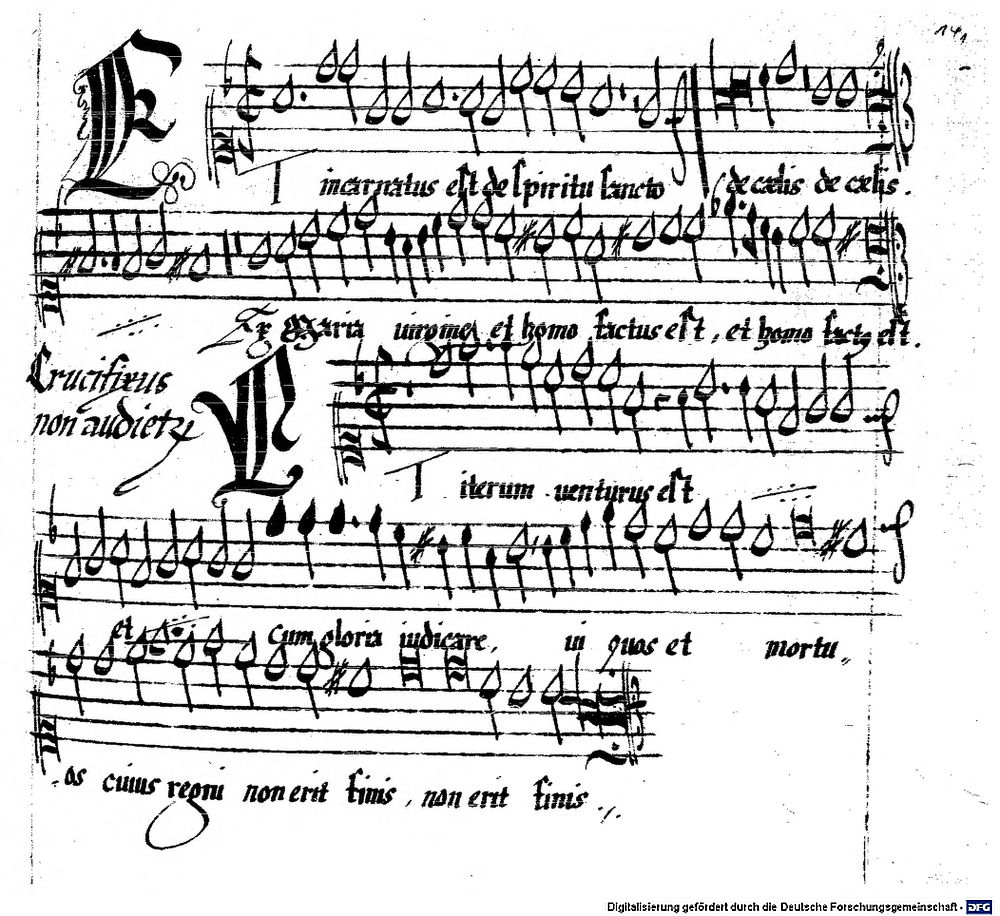 141
Et incarnatus est de spiritu sancto de cælis de cælis.
Ex Maria uirgine, et homo factus est, et homo fact9 est.
Crucifixus
non audietur
Et iterum uenturus est
et cum gloria iudicare, ui quos et mortu„
os cuius regni non erit finis, non erit finis.
Digitalisierung gefördert durch die Deutsche Forschungsgemeinschaft - DFG